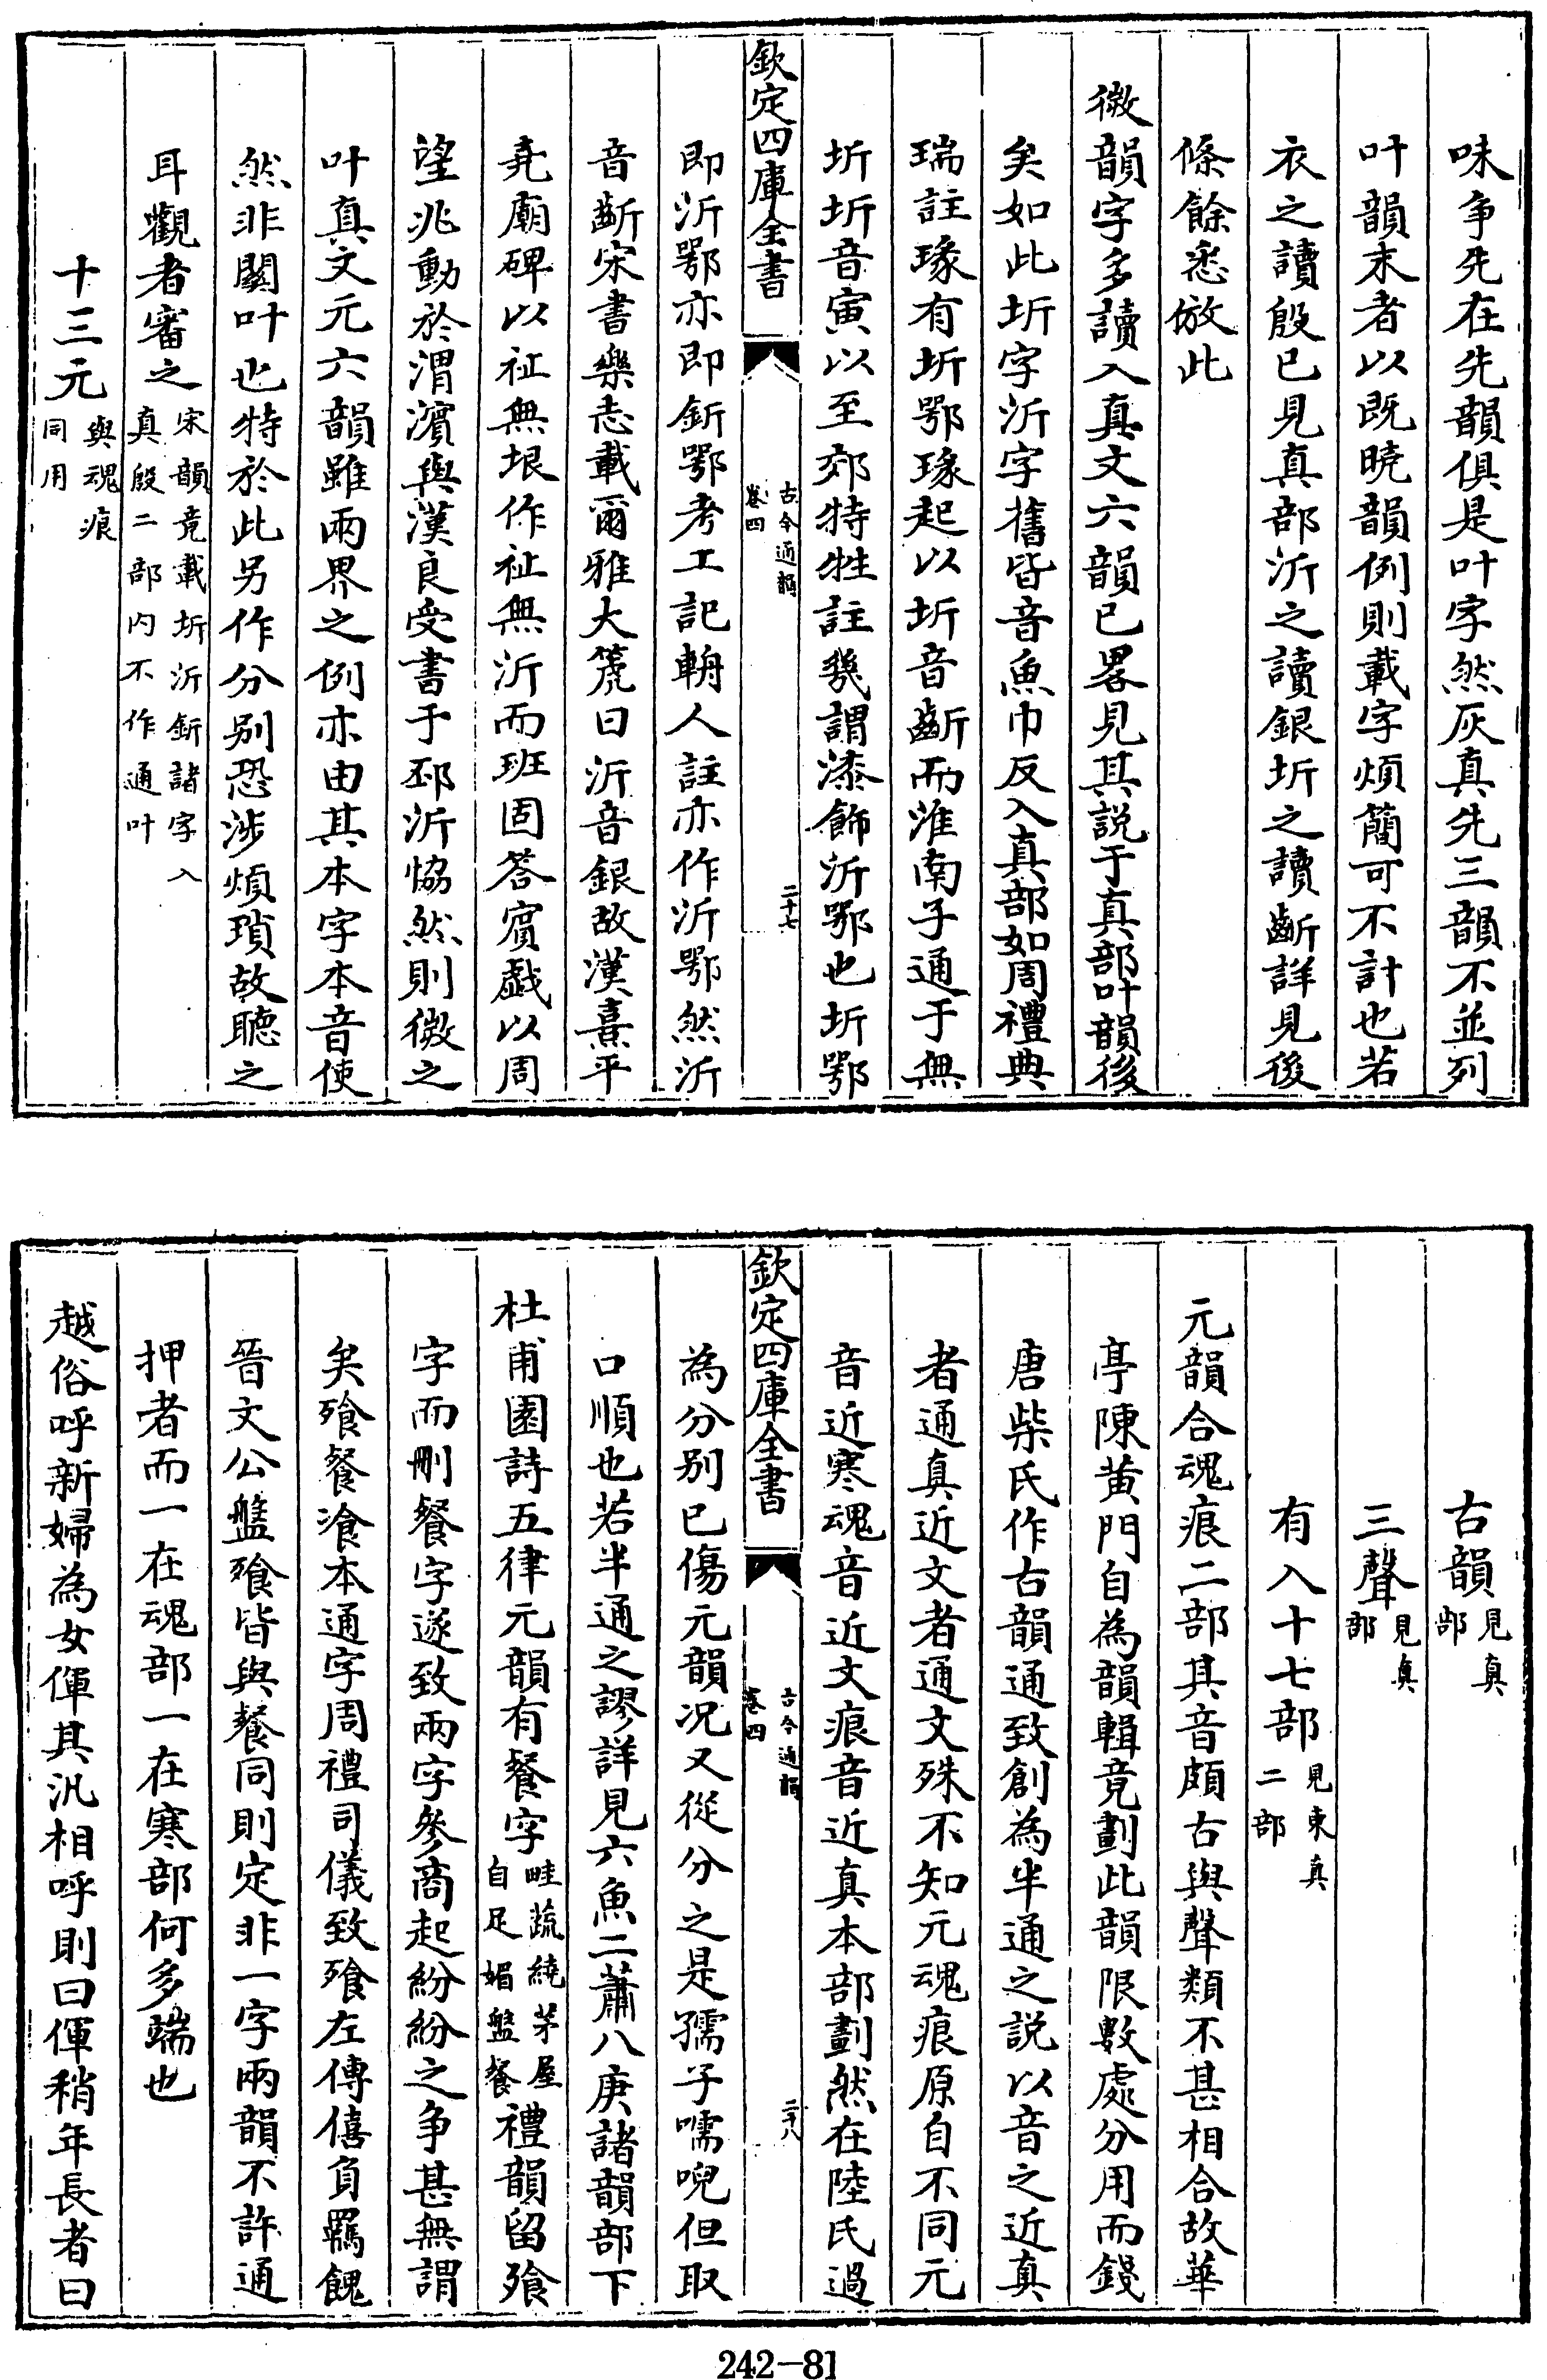 味争先在先韻俱是叶字然灰真先三韻不並列
叶韻末者以既曉韻例則載字煩簡可不計也若
衣之讀殷已見真部沂之讀銀圻之讀齗詳見後
條餘悉倣此
微韻字多讀入真文六韻已畧見其説于真部叶韻後
矣如此圻字沂字舊皆音魚巾反入真部如周禮典
瑞註瑑有圻鄂瑑起以圻音齗而淮南子通于無
圻圻音寅以至郊特牲註幾謂漆飾沂鄂也圻鄂
欽定四庫全書
古今通韻
卷四
二十七
即沂鄂亦即釿鄂考工記輈人註亦作沂鄂然沂
音齗宋書樂志載爾雅大箎曰沂音銀故漢熹平
堯廟碑以祉無垠作祉無沂而班固答賓戲以周
望兆動於渭濱與漢良受書于邳沂恊然則微之
叶真文元六韻雖兩界之例亦由其本字本音使
然非關叶也特於此另作分别恐涉煩瑣故聽之
耳觀者審之
宋韻竟載圻沂釿諸字入
真殷二部内不作通叶
十三元
與魂痕
同用
古韻
見真
部
三聲
見真
部
有入十七部
見東真
二部
元韻合魂痕二部其音頗古與聲類不甚相合故華
亭陳黄門自為韻輯竟劃此韻限數處分用而錢
唐柴氏作古韻通致創為半通之説以音之近真
者通真近文者通文殊不知元魂痕原自不同元
音近寒魂音近文痕音近真本部劃然在陸氏過
欽定四庫全書
古今通韻
卷四
二十八
為分别已傷元韻况又從分之是孺子嚅唲但取
口順也若半通之謬詳見六魚二蕭八庚諸韻部下
杜甫園詩五律元韻有餐字
畦蔬繞茅屋
自足媚盤餐
禮韻留飱
字而刪餐字遂致兩字參商起紛紛之争甚無謂
矣飱餐湌本通字周禮司儀致飱左傳僖負羈餽
晉文公盤飱皆與餐同則定非一字兩韻不許通
押者而一在魂部一在寒部何多端也
越俗呼新婦為女㑮其汎相呼則曰㑮稍年長者曰
242-81